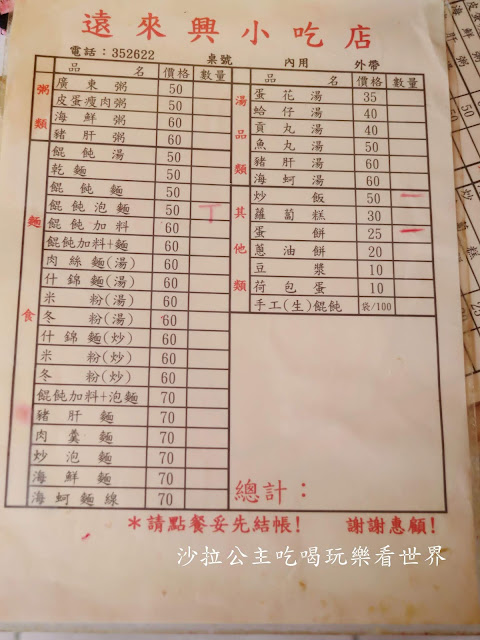 遠來興小吃店
電話：352622 桌號 內用 外帶
粥類
品名 價格 數量
廣東粥 50
皮蛋瘦肉粥 50
海鮮粥 60
豬肝粥 60
麵食
餛飩湯 50
乾麵 50
餛飩麵 50
餛飩泡麵 50 丅
餛飩加料 60
餛飩加料+麵 60
肉絲麵(湯) 60
什錦麵(湯) 60
米粉(湯) 60
冬粉(湯) 60
什錦麵(炒) 60
米粉(炒) 60
冬粉(炒) 60
餛飩加料+泡麵 70
豬肝麵 70
肉羹麵 70
炒泡麵 70
海鮮麵 70
海蚵麵線 70
湯品類
品名 價格 數量
蛋花湯 35
蛤仔湯 40
貢丸湯 40
魚丸湯 50
豬肝湯 60
海蚵湯 60
其他類
炒飯 50 一
蘿蔔糕 30
蛋餅 25 一
蔥油餅 20
豆漿 10
荷包蛋 10
手工(生)餛飩 袋/100
總計：
*請點餐妥先結帳! 謝謝惠顧!
沙拉公主吃喝玩樂看世界